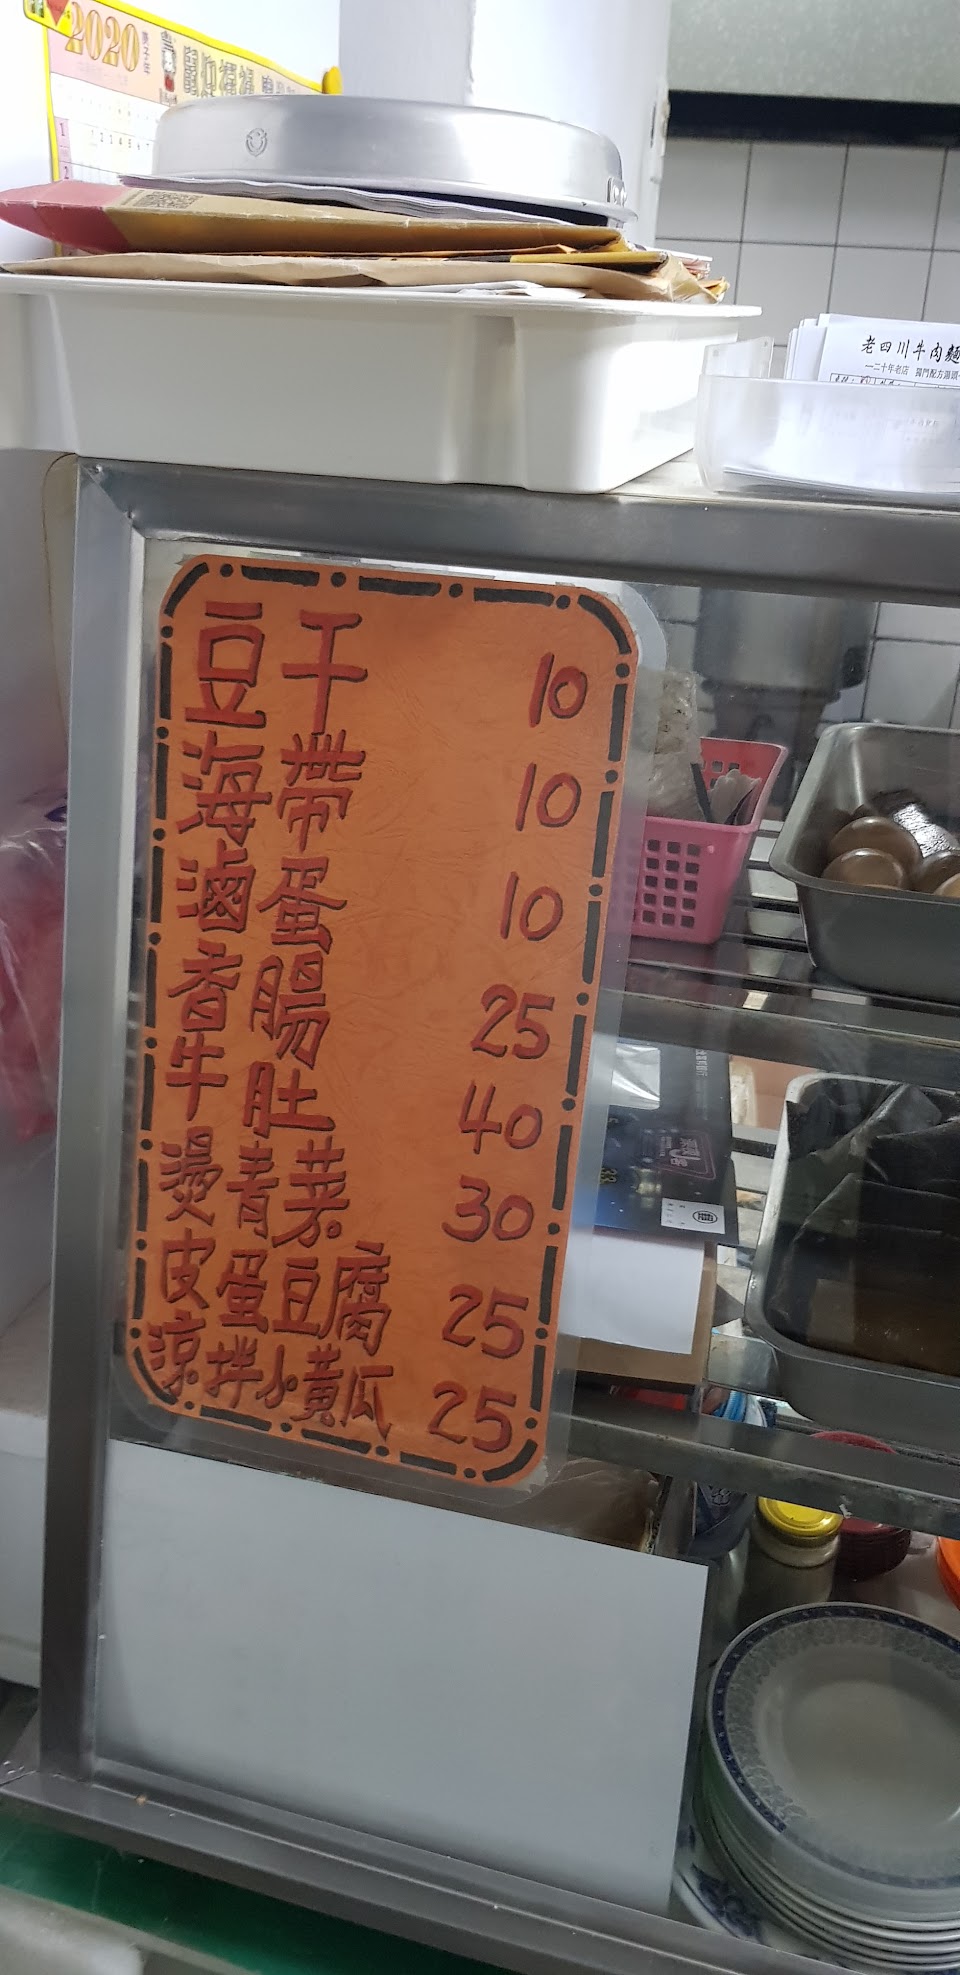 2020
庚子年
老四川牛肉麵
一二十年老店 獨門配方湯頭
豆干 10
海帶 10
滷蛋 10
香腸 25
牛肚 40
燙青菜 30
皮蛋豆腐 25
涼拌小黃瓜 25